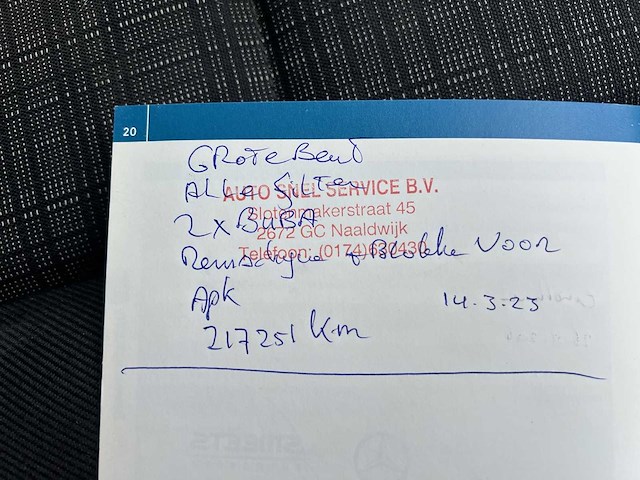 20
GROTE Beurt
Alle Filters
AUTO SNEL SERVICE B.V.
Slotenmakerstraat 45
2 x BuBA
2672 GC Naaldwijk
Telefoon: (0174) 630430
Remschijven + Blokken VOOR
Apk
14-3-23
217251 Km